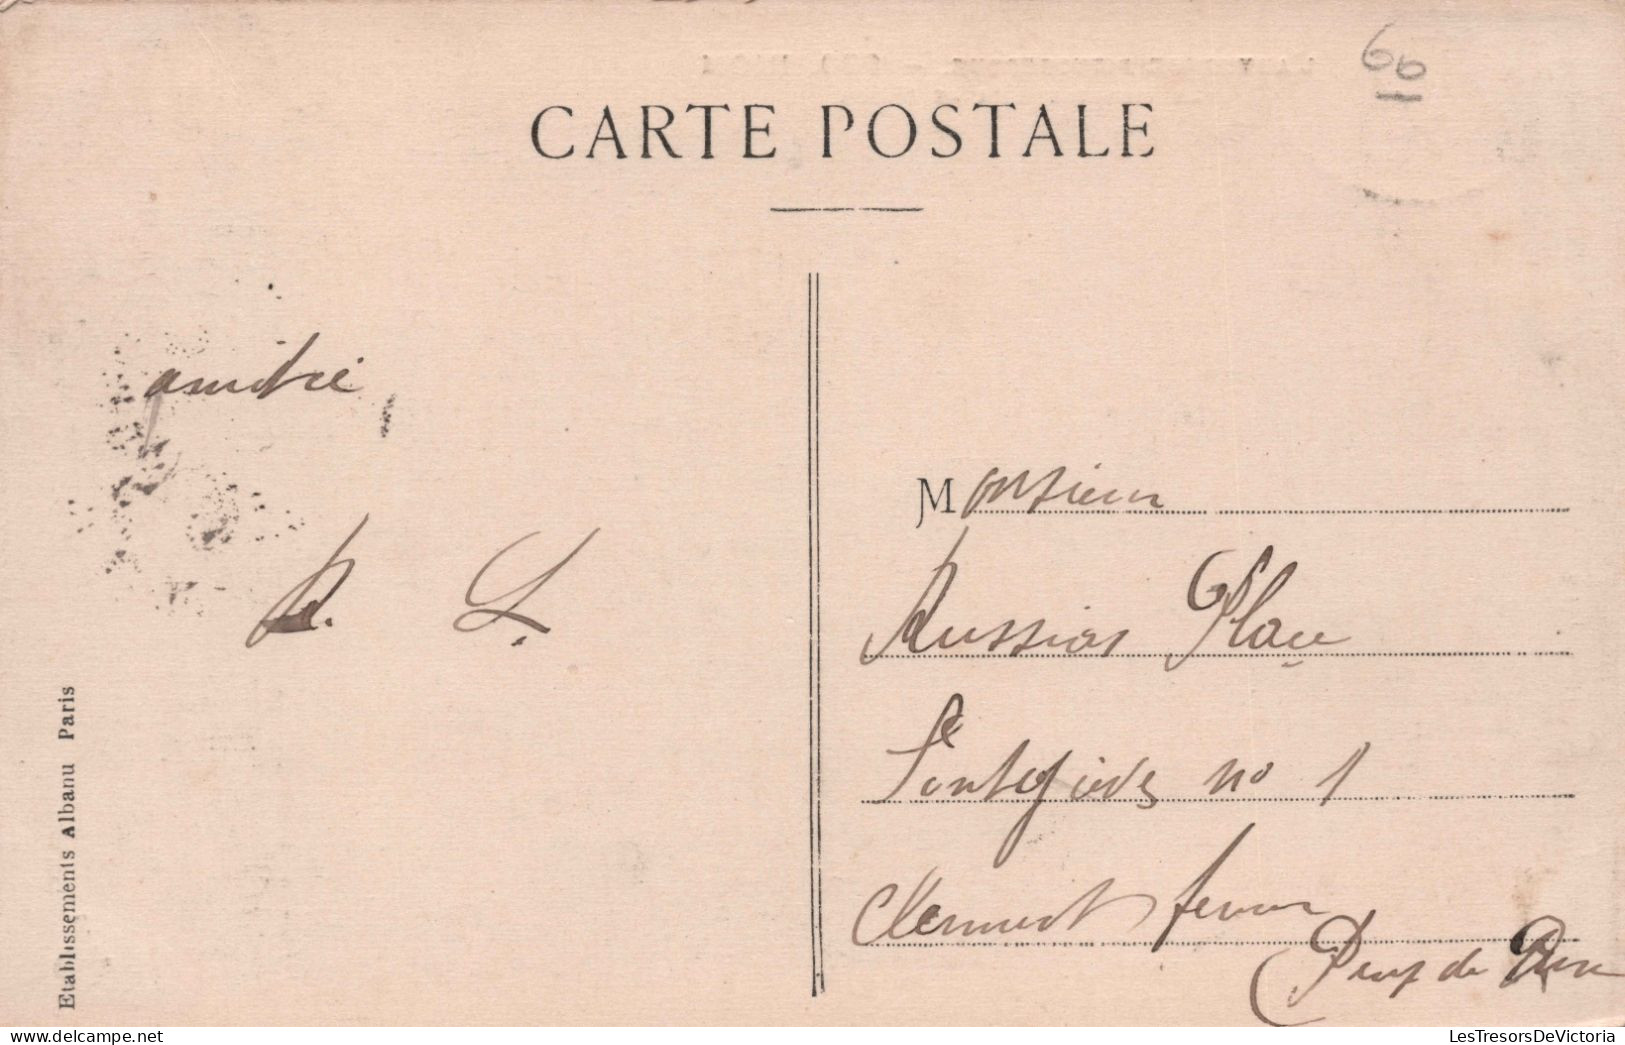 66
CARTE POSTALE
amitié
R. L.
Monsieur
Russias Place
Fontgiève no 1
Clermont ferran
(Puy de Dome
Etablissements Albanu Paris
LesTresorsDeVictoria.com